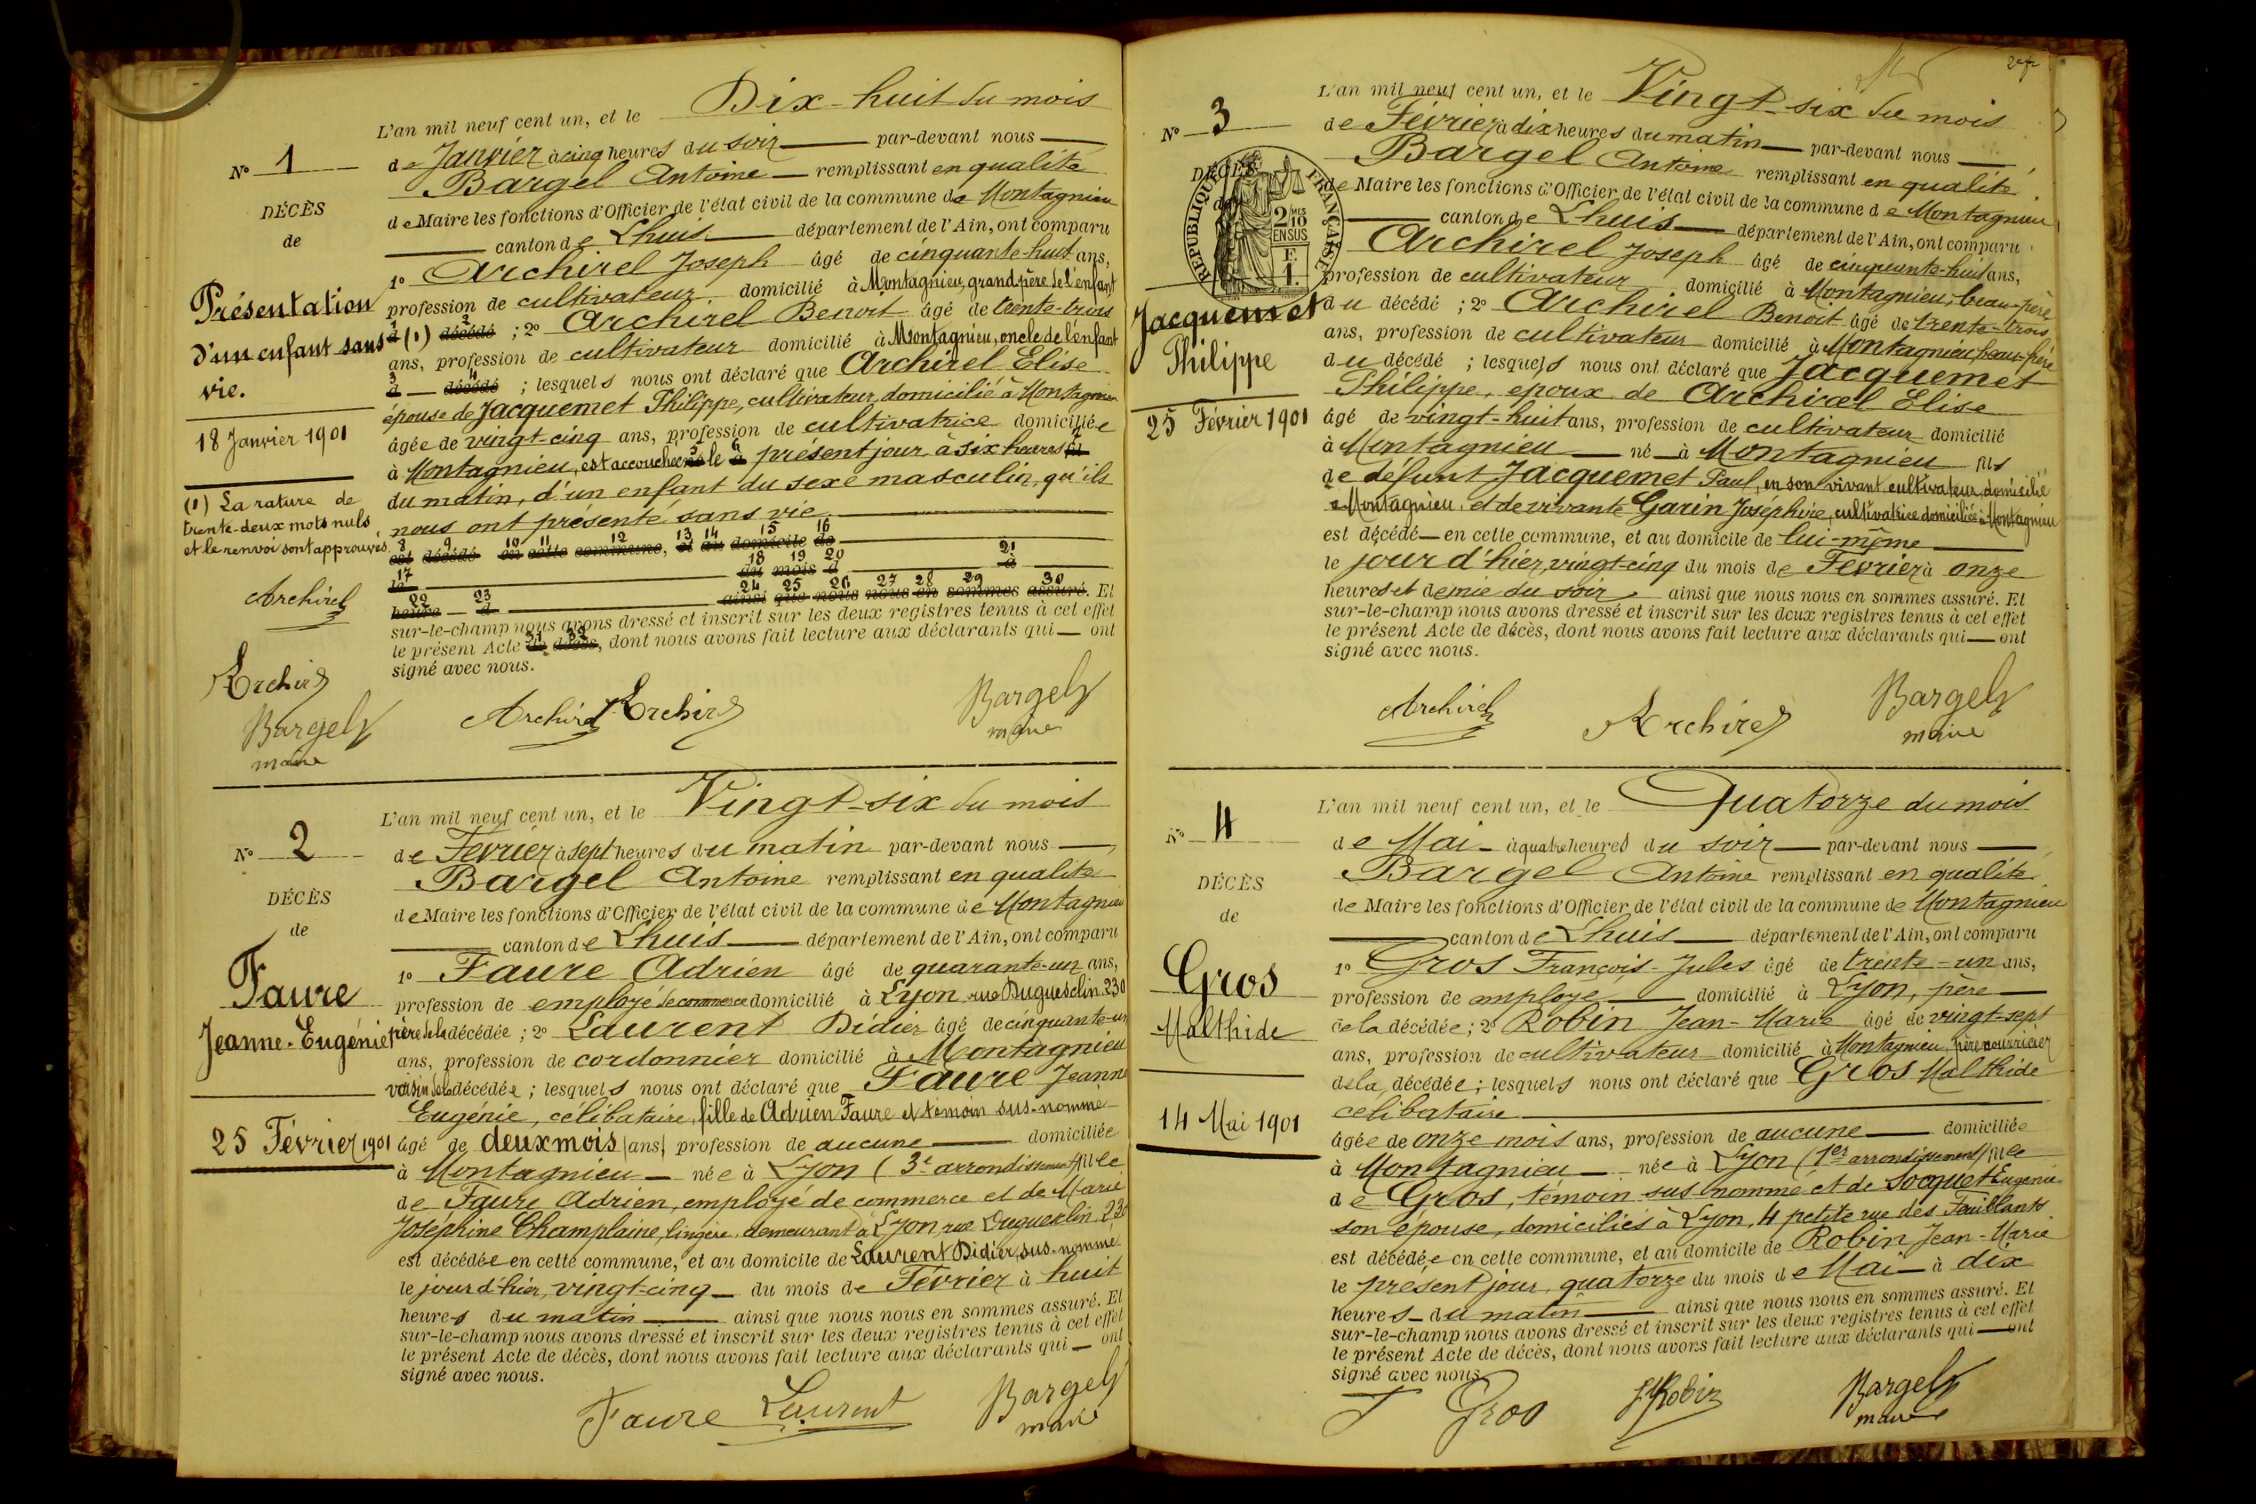 L'an mil neuf cent un, et le Dix-huit du mois
No 1
de Janvier à cinq heures du soir par-devant nous
Bargel Antoine remplissant en qualité
DÉCÈS
de Maire les fonctions d'Officier de l'état civil de la commune de Montagnieu
de
canton de Lhuis département de l'Ain, ont comparu
1o Archirel Joseph âgé de cinquante-huit ans,
Présentation
profession de cultivateur domicilié à Montagnieu, grand-père de l'enfant
d'un enfant sans
d (1) décédé ; 2o Archirel Benoit âgé de trente-trois
vie.
ans, profession de cultivateur domicilié à Montagnieu, oncle de l'enfant
d décédé ; lesquels nous ont déclaré que Archirel Elise
épouse de Jacquemet Philippe, cultivateur, domicilié à Montagnieu
18 Janvier 1901
âgée de vingt-cinq ans, profession de cultivatrice domiciliée
à Montagnieu, est accouchée né le à présent jour, à six heures fil
du matin, d'un enfant du sexe masculin, qu'ils
nous ont présenté sans vie.
(1) La rature de
trente-deux mots nuls
et le renvoi sont approuvés
est décédé en cette commune, et au domicile de
le du mois d à
heure d ainsi que nous nous en sommes assuré. Et
sur-le-champ nous avons dressé et inscrit sur les deux registres tenus à cet effet
le présent Acte de décès, dont nous avons fait lecture aux déclarants qui ont
signé avec nous.
Archirel
Archirel
Bargel
maire
Archirel Archirel Bargel
maire
L'an mil neuf cent un, et le Vingt-six du mois
No 2
de Février à sept heures du matin par-devant nous
Bargel Antoine remplissant en qualité
DÉCÈS
de Maire les fonctions d'Officier de l'état civil de la commune de Montagnieu
de
canton de Lhuis département de l'Ain, ont comparu
1o Faure Adrien âgé de quarante-un ans,
Faure
profession de employé de commerce domicilié à Lyon rue Duguesclin 230
Jeanne-Eugénie
père de la décédée ; 2o Laurent Didier âgé de cinquante-un
ans, profession de cordonnier domicilié à Montagnieu
voisin de la décédée ; lesquels nous ont déclaré que Faure Jeanne
Eugénie, célibataire, fille de Adrien Faure et témoin sus-nommé
25 Février 1901
âgé de deux mois (ans) profession de aucune domiciliée
à Montagnieu née à Lyon (3e arrondissement) fille
de Faure Adrien, employé de commerce et de Marie
Joséphine Champlaine, lingère, demeurant à Lyon, rue Duguesclin 230
est décédée en cette commune, et au domicile de Laurent Didier, sus-nommé
le jour d'hier, vingt-cinq du mois de Février à huit
heures du matin ainsi que nous nous en sommes assuré. Et
sur-le-champ nous avons dressé et inscrit sur les deux registres tenus à cet effet
le présent Acte de décès, dont nous avons fait lecture aux déclarants qui ont
signé avec nous.
Faure Laurent Bargel
maire
L'an mil neuf cent un, et le Vingt-six du mois
No 3
de Février à dix heures du matin par-devant nous
Bargel Antoine remplissant en qualité
DÉCÈS
de Maire les fonctions d'Officier de l'état civil de la commune de Montagnieu
de
canton de Lhuis département de l'Ain, ont comparu
RÉPUBLIQUE FRANÇAISE
2/10 MES
EN SUS
F.
1.
Archirel Joseph âgé de cinquante-huit ans,
profession de cultivateur domicilié à Montagnieu, beau-père
Jacquemet
du décédé ; 2o Archirel Benoit âgé de trente-trois
Philippe
ans, profession de cultivateur domicilié à Montagnieu, beau-frère
du décédé ; lesquels nous ont déclaré que Jacquemet
Philippe, epoux de Archirel Elise
25 Février 1901
âgé de vingt-huit ans, profession de cultivateur domicilié
à Montagnieu né à Montagnieu fils
de défunt Jacquemet Paul, en son vivant cultivateur, domicilié
à Montagnieu, et de vivante Garin Joséphine, cultivatrice domiciliée à Montagnieu
est décédé en cette commune, et au domicile de lui-même
le jour d'hier, vingt-cinq du mois de Février à onze
heures et demie du soir ainsi que nous nous en sommes assuré. Et
sur-le-champ nous avons dressé et inscrit sur les deux registres tenus à cet effet
le présent Acte de décès, dont nous avons fait lecture aux déclarants qui ont
signé avec nous.
Archirel Archirel Bargel
maire
L'an mil neuf cent un, et le Quatorze du mois
No 4
de Mai à quatre heures du soir par-devant nous
Bargel Antoine remplissant en qualité
DÉCÈS
de Maire les fonctions d'Officier de l'état civil de la commune de Montagnieu
de
canton de Lhuis département de l'Ain, ont comparu
1o Gros François-Jules âgé de trente-un ans,
Gros
profession de employé domicilié à Lyon, père
Malthide
de la décédée ; 2o Robin Jean-Marie âgé de vingt-sept
ans, profession de cultivateur domicilié à Montagnieu, père nourricier
de la décédée ; lesquels nous ont déclaré que Gros Malthide
celibataire
14 Mai 1901
âgée de onze mois ans, profession de aucune domiciliée
à Montagnieu née à Lyon (1er arrondissement) fille
de Gros, témoin sus nommé et de Socquet Eugénie
son epouse, domiciliés à Lyon, 4 petite rue des Feuillants
est décédée en cette commune, et au domicile de Robin Jean-Marie
le présent jour, quatorze du mois de Mai à dix
heures du matin ainsi que nous nous en sommes assuré. Et
sur-le-champ nous avons dressé et inscrit sur les deux registres tenus à cet effet
le présent Acte de décès, dont nous avons fait lecture aux déclarants qui ont
signé avec nous.
J Gros JM Robin Bargel
maire